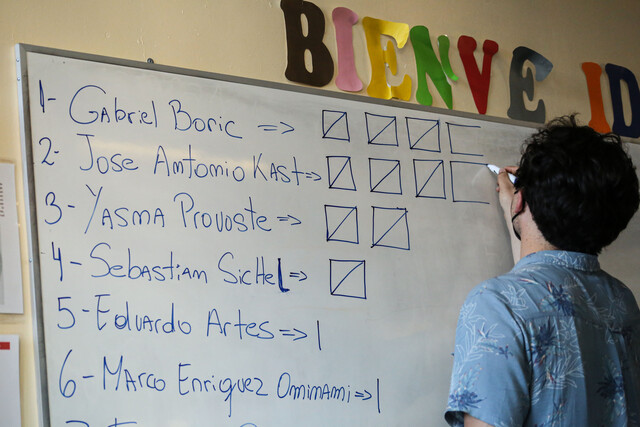 BIENVE ID
1- Gabriel Boric =>
2- Jose Antonio Kast =>
3- Yasma Provoste =>
4- Sebastiam Sichel =>
5- Eduardo Artes => |
6- Marco Enriquez Ominami => |